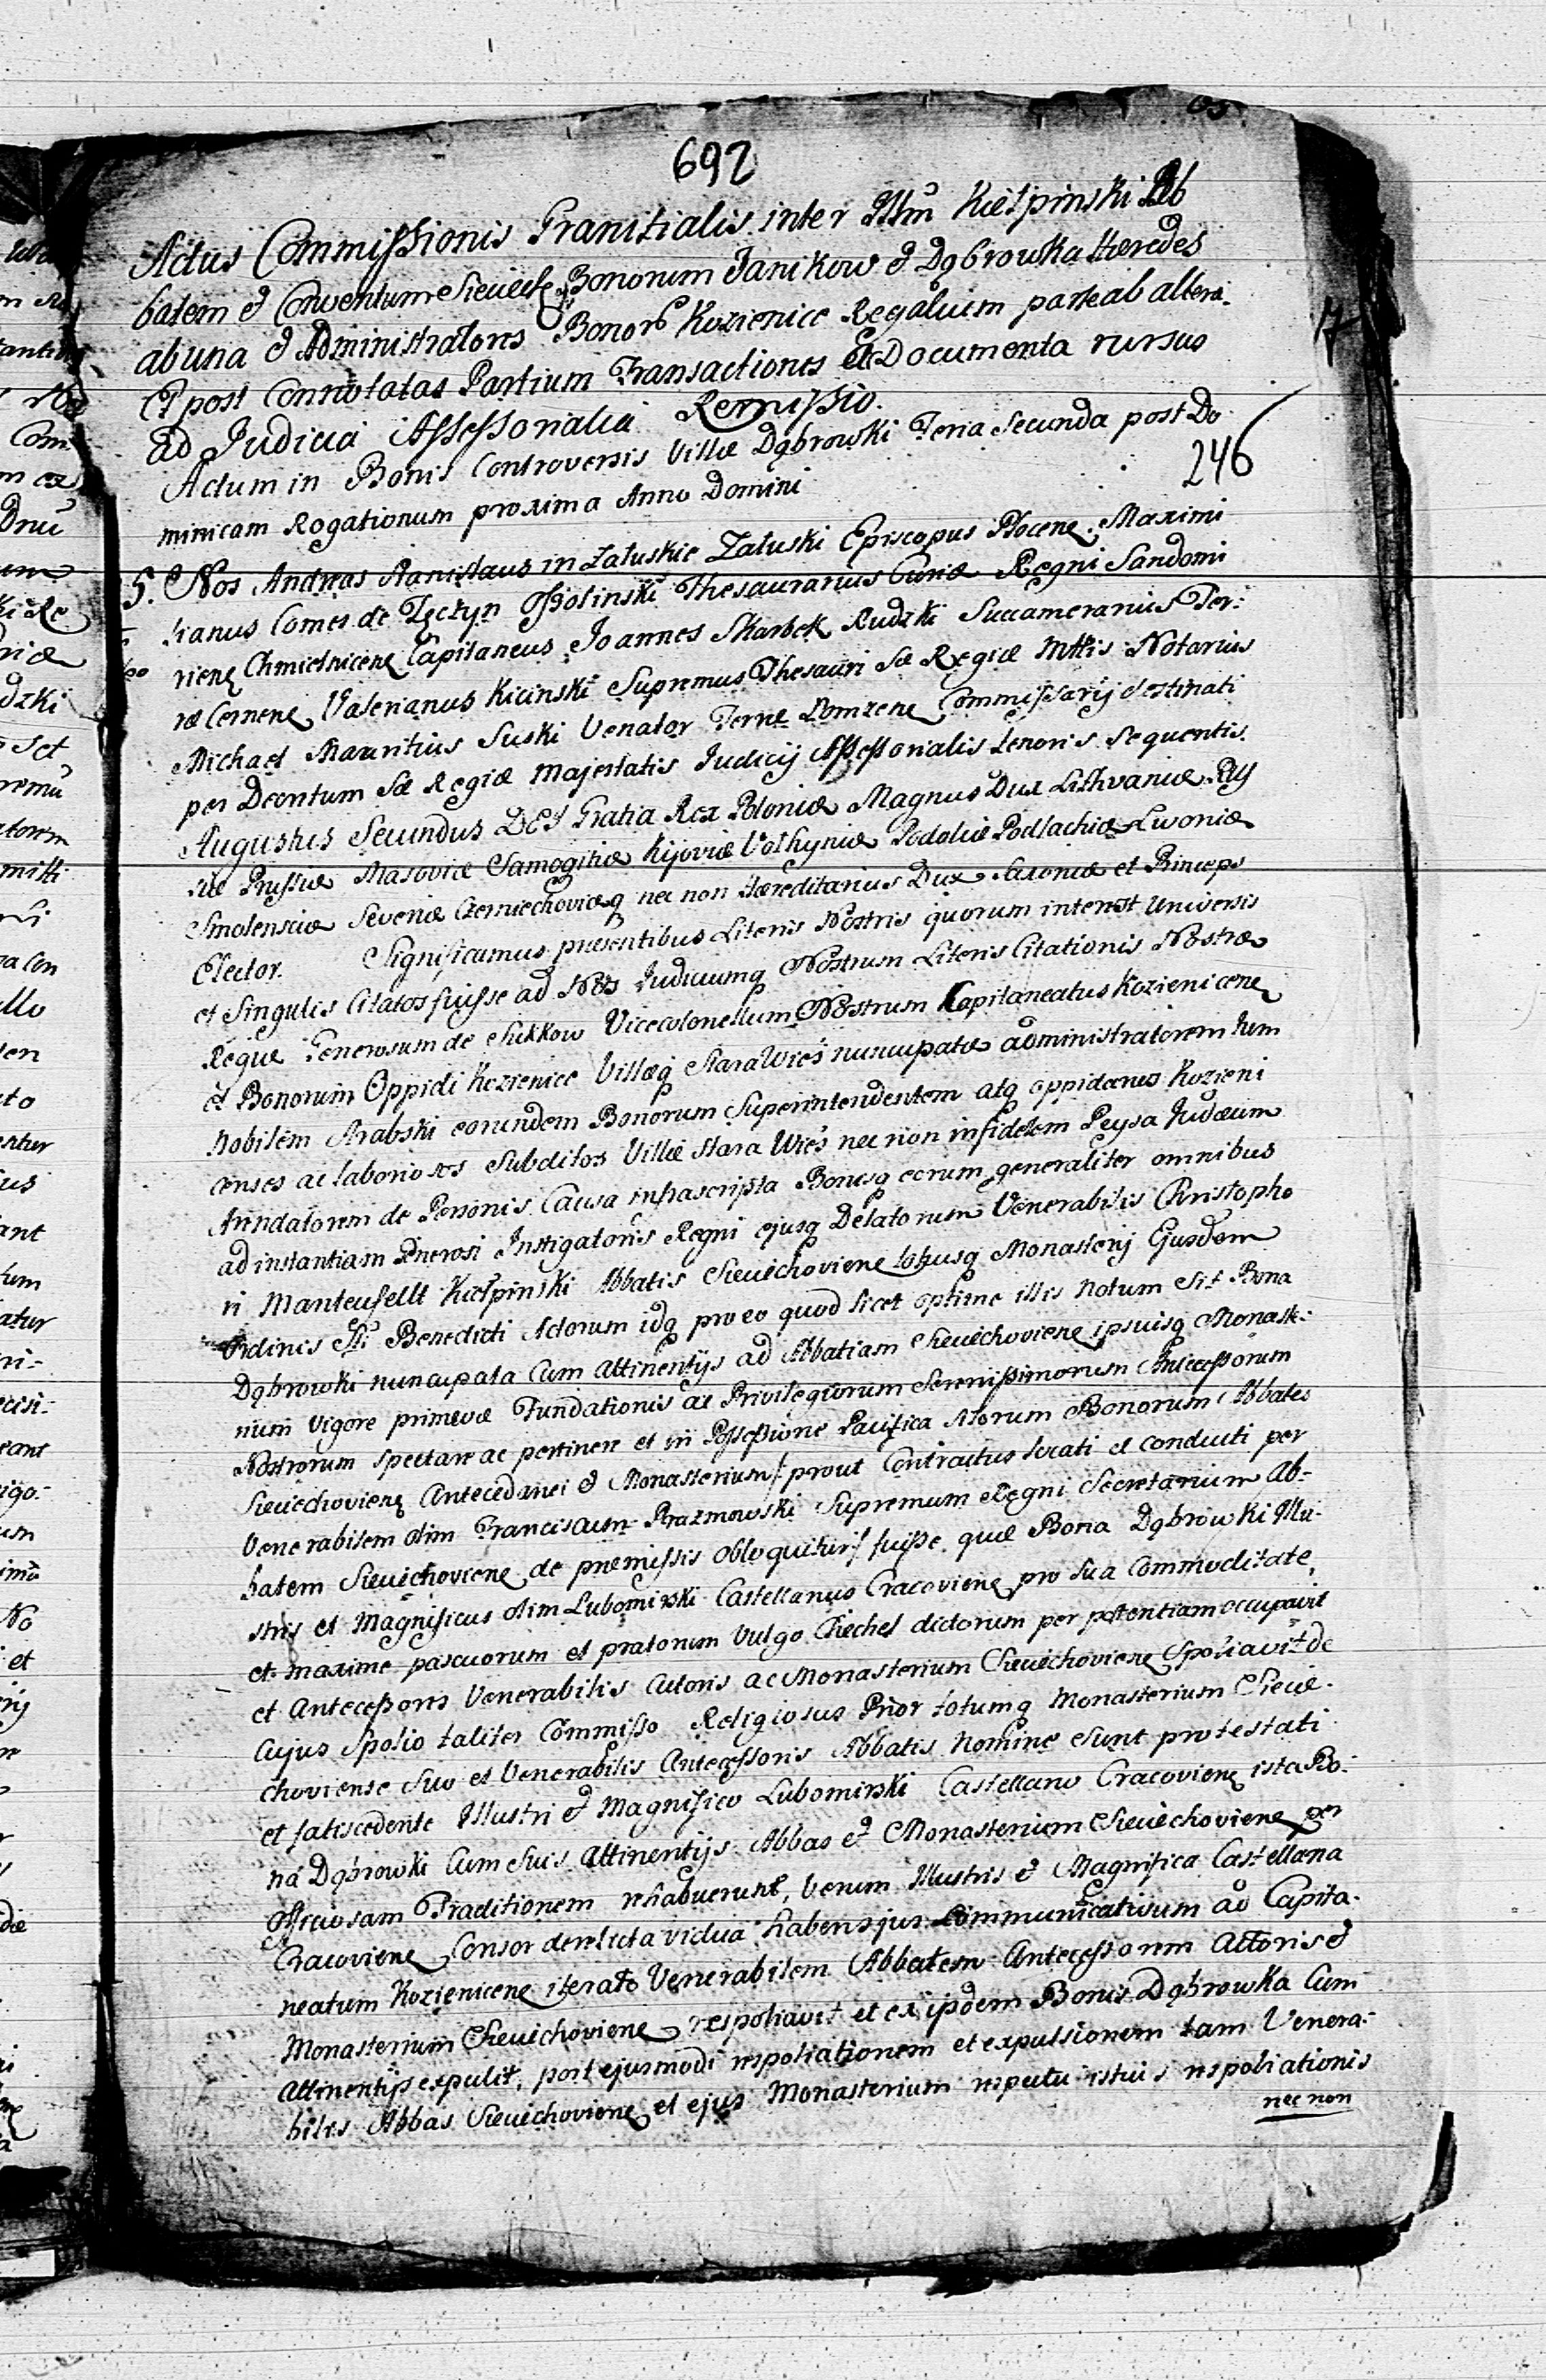 692
Actus Commissionis Granitialis inter Illm̃ Kiełpinski Ab
batem et Conventum Sieciech Bonorum Janikow et Dąbrowka Hæredes
ab una et Administratoris Bonor Kozienice Regalium parte ab altera
Et post Connotatas Partium Transactiones et Documenta rursus
ad Judicia Assessorialia Remissio.
Actum in Bonis Controversis Villæ Dąbrowki Feria Secunda post Do
17
246
minicam Rogationum proxima Anno Domini
5. Nos Andreas Stanislaus in Załuskie Załuski Episcopus Płocen. Maximi
lianus Comes de Tęczyn Ossolinski Thesaurarius Curiæ Regni Sandomi
rien Chmielnicen Capitaneus Joannes Skarbek Rudzki Succamerarius Ter:
ræ Cernen Valerianus Kicinski Supremus Thesauri Sæ Regiæ Mttis Notarius
Michael Mauritius Suski Venator Terræ Łomzen Commissarij destinati
per Decretum Sæ Regiæ Majestatis Judicij Assessorialis tenoris sequentis.
Augustus Secundus DEI Gratia Rex Poloniæ Magnus Dux Lithvaniæ Rus
siæ Prussiæ Masoviæ Samogitiæ Kijoviæ Volhyniæ Podoliæ Podlachiæ Livoniæ
Smolensciæ Severiæ Czerniechoviæq nec non Hæreditarius Dux Saxoniæ et Princeps
Elector. Significamus præsentibus Literis Nostris quorum interest Universis
et Singulis Citatos fuisse ad Nos Judiciumq Nostrum Literis Citationis Nostræ
Regiæ Generosum de Sukkow Vicecolonellum Nostrum Capitaneatus Kozienicen
et Bonorum Oppidi Kozienice Villæq Stara Wieś nuncupatæ administratorem tum
Nobilem Arabski eorundem Bonorum Superintendentem atq oppidanos Kozieni
censes ac laboriosos Subditos Villæ Stara Wieś nec non infidelem Peysa Judæum
Arendatorem de Personis Causa infrascripta Bonisq eorum generaliter omnibus
ad instantiam Generosi Instigatoris Regni ejusq Delatorum Venerabilis Christopho
ri Manteufellt Kiełpinski Abbatis Sieciechovien totiusq Monasterij Ejusdem
Ordinis Sti Benedicti Actorum idq pro eo quod licet optime illis notum sit Bona
Dąbrowki nuncupata Cum attinentijs ad Abbatiam Sieciechovien ipsiusq Monaste:
rium vigore primævæ Fundationis ac Privilegiorum Serenissimorum Antecessorum
Nostrorum spectare ac pertinere et in Possessione Pacifica Istorum Bonorum Abbates
Sieciechovien Antecedanei et Monasterium / prout Contractus locati et conducti per
Venerabilem olim Franciscum Prazmowski Supremum Regni Secretarium Ab=
batem Sieciechovien de præmissis obloquitur / fuisse. quæ Bona Dąbrowki Illu-
stris et Magnificus olim Lubomirski Castellanus Cracovien pro sua Commoditate,
et maxime pascuorum et pratorum vulgo Chechel dictorum per potentiam occupavit
et Antecessoris Venerabilis Actoris ac Monasterium Sieciechovien Spoliavit de
cujus Spolio taliter Commisso Religiosus Prior totumq Monasterium Siecie-
choviense Suo et Venerabilis Antecessoris Abbatis Nomine Sunt protestati
et satiscedente Illustri et Magnifico Lubomirski Castellano Cracovien ista Bo-
na Dąbrowki Cum Suis Attinentijs Abbas et Monasterium Sieciechovien per
Officiosam Traditionem rehabuerunt, Verum Illustris et Magnifica Castellana
Cracovien Consor derelicta vidua habens jus Communicativum ad Capita-
neatum Kozienicen iterato Venerabilem Abbatem Antecessorem Actoris et
Monasterium Sieciechovien respoliavit et ex ijsdem Bonis Dąbrowka Cum
Attinentijs expulit, post ejusmodi respoliationem et expulsionem tam Venera-
biles Abbas Sieciechovien et ejus Monasterium repetu istius respoliationis
nec non